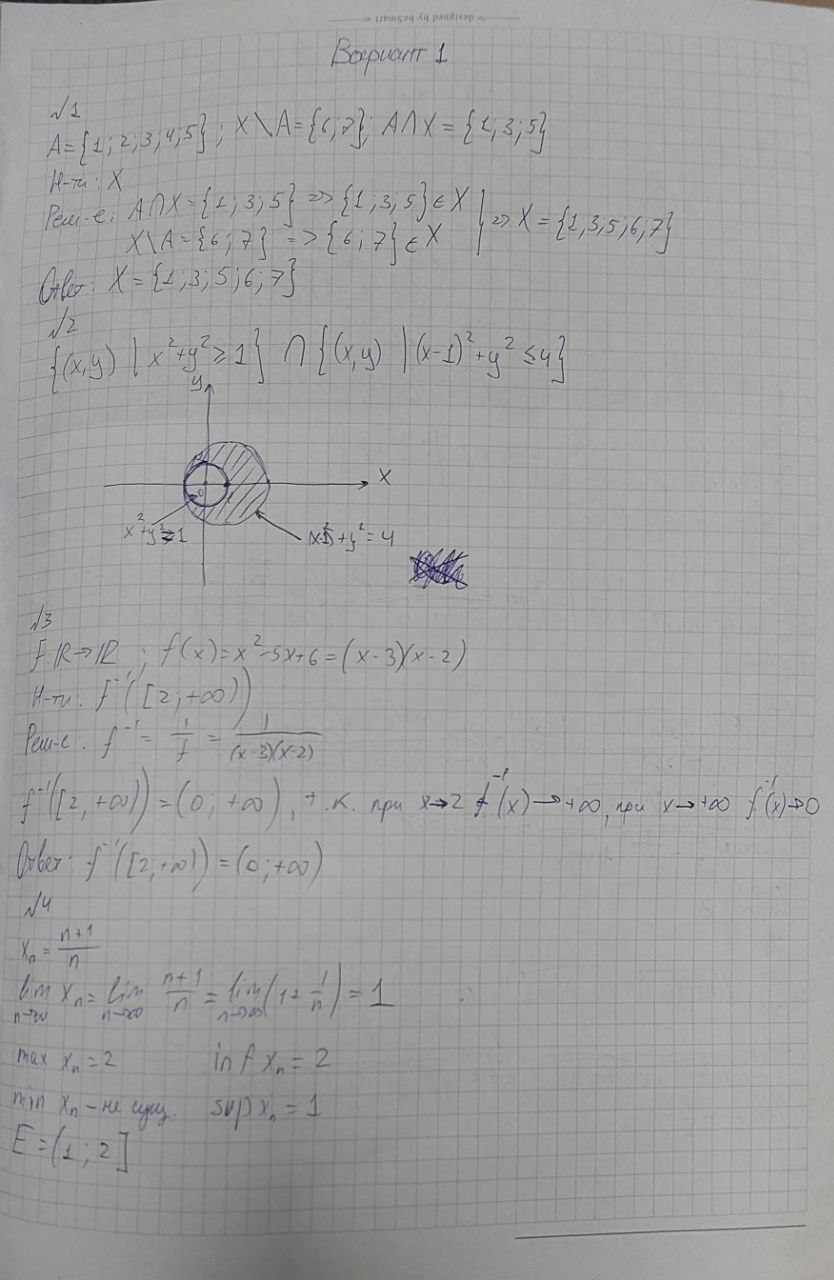 designed by beSmart
Вариант 1
√1
A={1;2;3;4;5}; X\A={6;7}; A∩X={1;3;5}
Н-ти: X
Реш-е: A∩X={1;3;5} => {1;3;5}∈X
X\A={6;7} => {6;7}∈X | => X={1,3,5;6,7}
Ответ: X={1;3;5;6;7}
√2
{(x,y) | x²+y²≥1} ∩ {(x,y) | (x-1)²+y²≤4}
y
x
0
1
x²+y²≥1
(x-1)²+y²=4
√3
f:ℝ→ℝ; f(x)=x²-5x+6=(x-3)(x-2)
Н-ти: f⁻¹([2;+∞))
Реш-е: f⁻¹=1/f=1/((x-3)(x-2))
f⁻¹([2,+∞))=(0;+∞), т.к. при x→2 f⁻¹(x)→+∞, при x→+∞ f⁻¹(x)→0
Ответ: f⁻¹([2;+∞))=(0;+∞)
√4
xₙ=(n+1)/n
lim n→∞ xₙ=lim n→∞ (n+1)/n=lim n→∞ (1+1/n)=1
max xₙ=2 inf xₙ=2
min xₙ-не сущ. sup xₙ=1
E=(1;2]